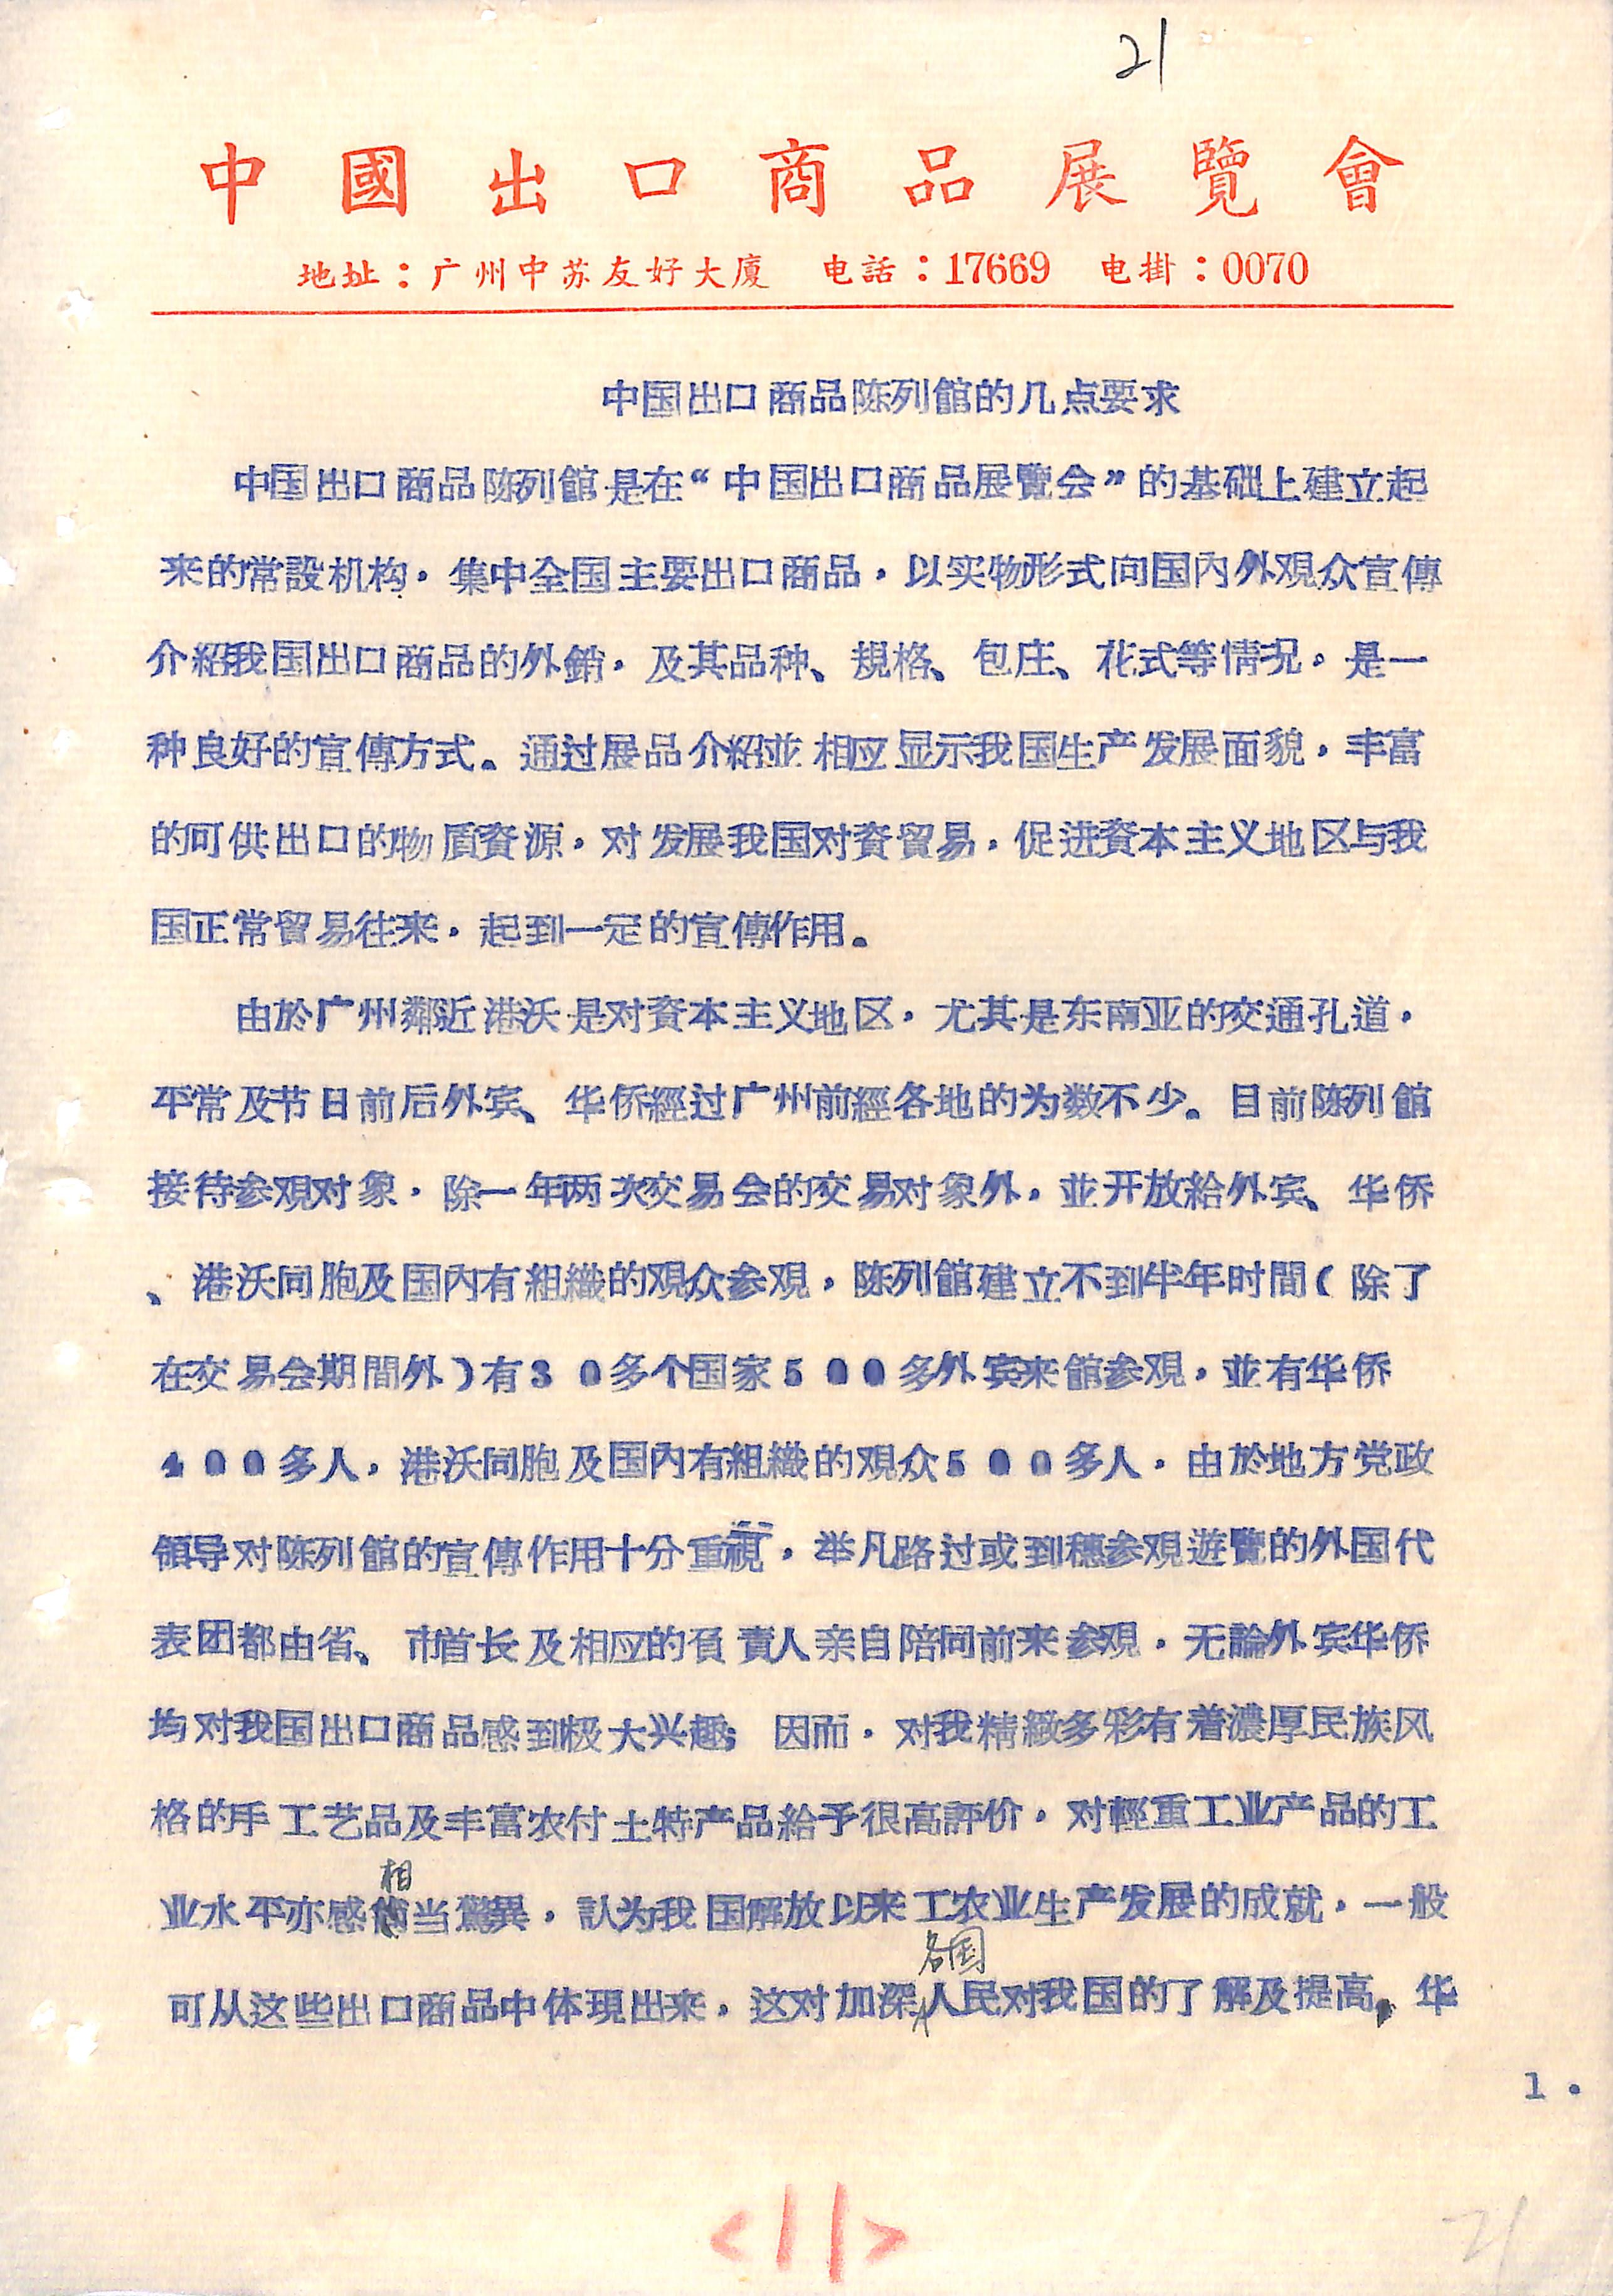 21
中國出口商品展覽會
地址：广州中苏友好大廈 电話：17669 电掛：0070
中国出口商品陈列館的几点要求
中国出口商品陈列館是在“中国出口商品展覽会”的基础上建立起
来的常設机构，集中全国主要出口商品，以实物形式向国内外观众宣傳
介紹我国出口商品的外銷，及其品种、規格、包庄、花式等情况，是一
种良好的宣傳方式。通过展品介紹並相应显示我国生产发展面貌，丰富
的可供出口的物質資源，对发展我国对資貿易，促进資本主义地区与我
国正常貿易往来，起到一定的宣傳作用。
由於广州鄰近港沃是对資本主义地区，尤其是东南亚的交通孔道，
平常及节日前后外宾、华侨經过广州前經各地的为数不少。目前陈列館
接待参观对象，除一年两次交易会的交易对象外，並开放給外宾、华侨
、港沃同胞及国内有組織的观众参观，陈列館建立不到半年时間（除了
在交易会期間外）有30多个国家500多外宾来館参观，並有华侨
400多人，港沃同胞及国内有組織的观众500多人，由於地方党政
領导对陈列館的宣傳作用十分重視，举凡路过或到穗参观遊覽的外国代
表团都由省、市首长及相应的負責人亲自陪同前来参观，无論外宾华侨
均对我国出口商品感到极大兴趣；因而，对我精緻多彩有着濃厚民族风
格的手工艺品及丰富农付土特产品給予很高評价，对輕重工业产品的工
业水平亦感相当驚異，認为我国解放以来工农业生产发展的成就，一般
可从这些出口商品中体現出来，这对加深各国人民对我国的了解及提高，华
1.
<11>
21